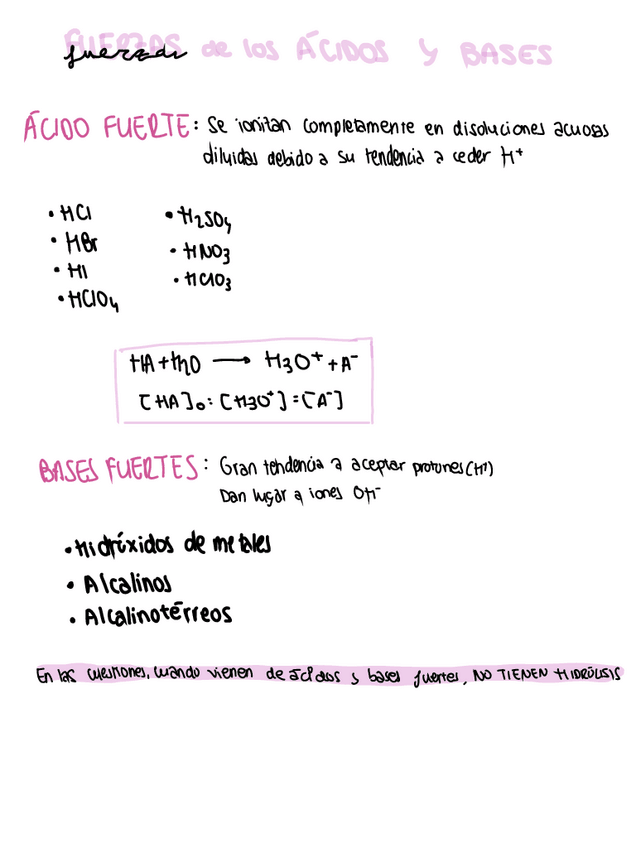 FUERZAS de los ÁCIDOS y BASES
ÁCIDO FUERTE: Se ionitan completamente en disoluciones acuosas
diluidas debido a su tendencia a ceder H⁺
• HCl
• HBr
• HI
• HClO₄
• H₂SO₄
• HNO₃
• HClO₃
HA + H₂O → H₃O⁺ + A⁻
[HA]₀ : [H₃O⁺] = [A⁻]
BASES FUERTES: Gran tendencia a aceptar protones (H⁺)
Dan lugar a iones OH⁻
• Hidróxidos de metales
• Alcalinos
• Alcalinotérreos
En las cuestiones, cuando vienen de ácidos y bases fuertes, NO TIENEN HIDRÓLISIS